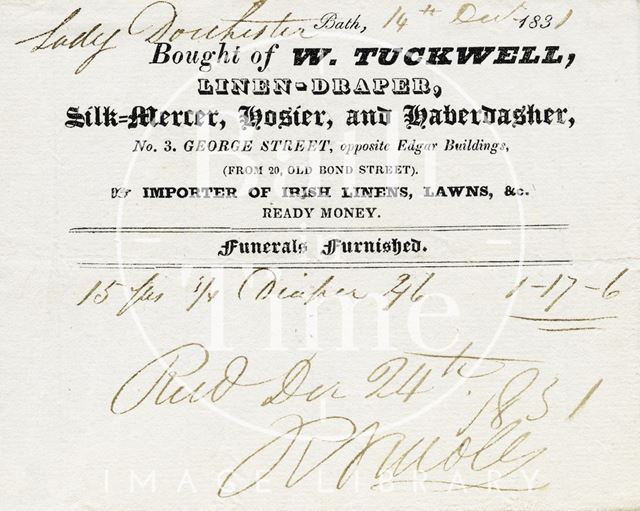 Lady Dorchester Bath, 14th Decr 1831
Bought of W. TUCKWELL,
LINEN-DRAPER,
Silk-Mercer, Hosier, and Haberdasher,
No. 3. GEORGE STREET, opposite Edgar Buildings,
(FROM 20, OLD BOND STREET).
☞ IMPORTER OF IRISH LINENS, LAWNS, &c.
READY MONEY.
Funerals Furnished.
15 Diaper 2/6 1-17-6
Recd Decr 24th 1831
Bath in Time
IMAGE LIBRARY